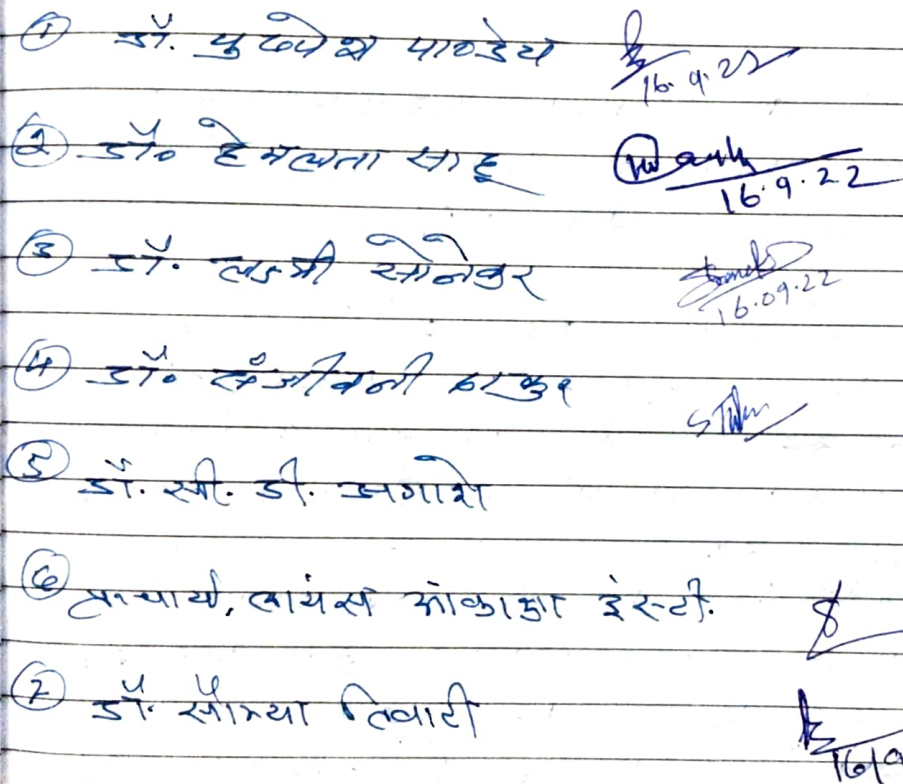 ① डॉ. पुष्पेश पाण्डेय 16.9.22
② डॉ० हेमलता साहू 16.9.22
③ डॉ. लक्ष्मी सोनेकर 16.09.22
④ डॉ० संजीवनी ठाकुर
⑤ डॉ. सी. डी. अगाशे
⑥ प्राचार्य, लायंस इंस्टी.
⑦ डॉ. सौम्या तिवारी